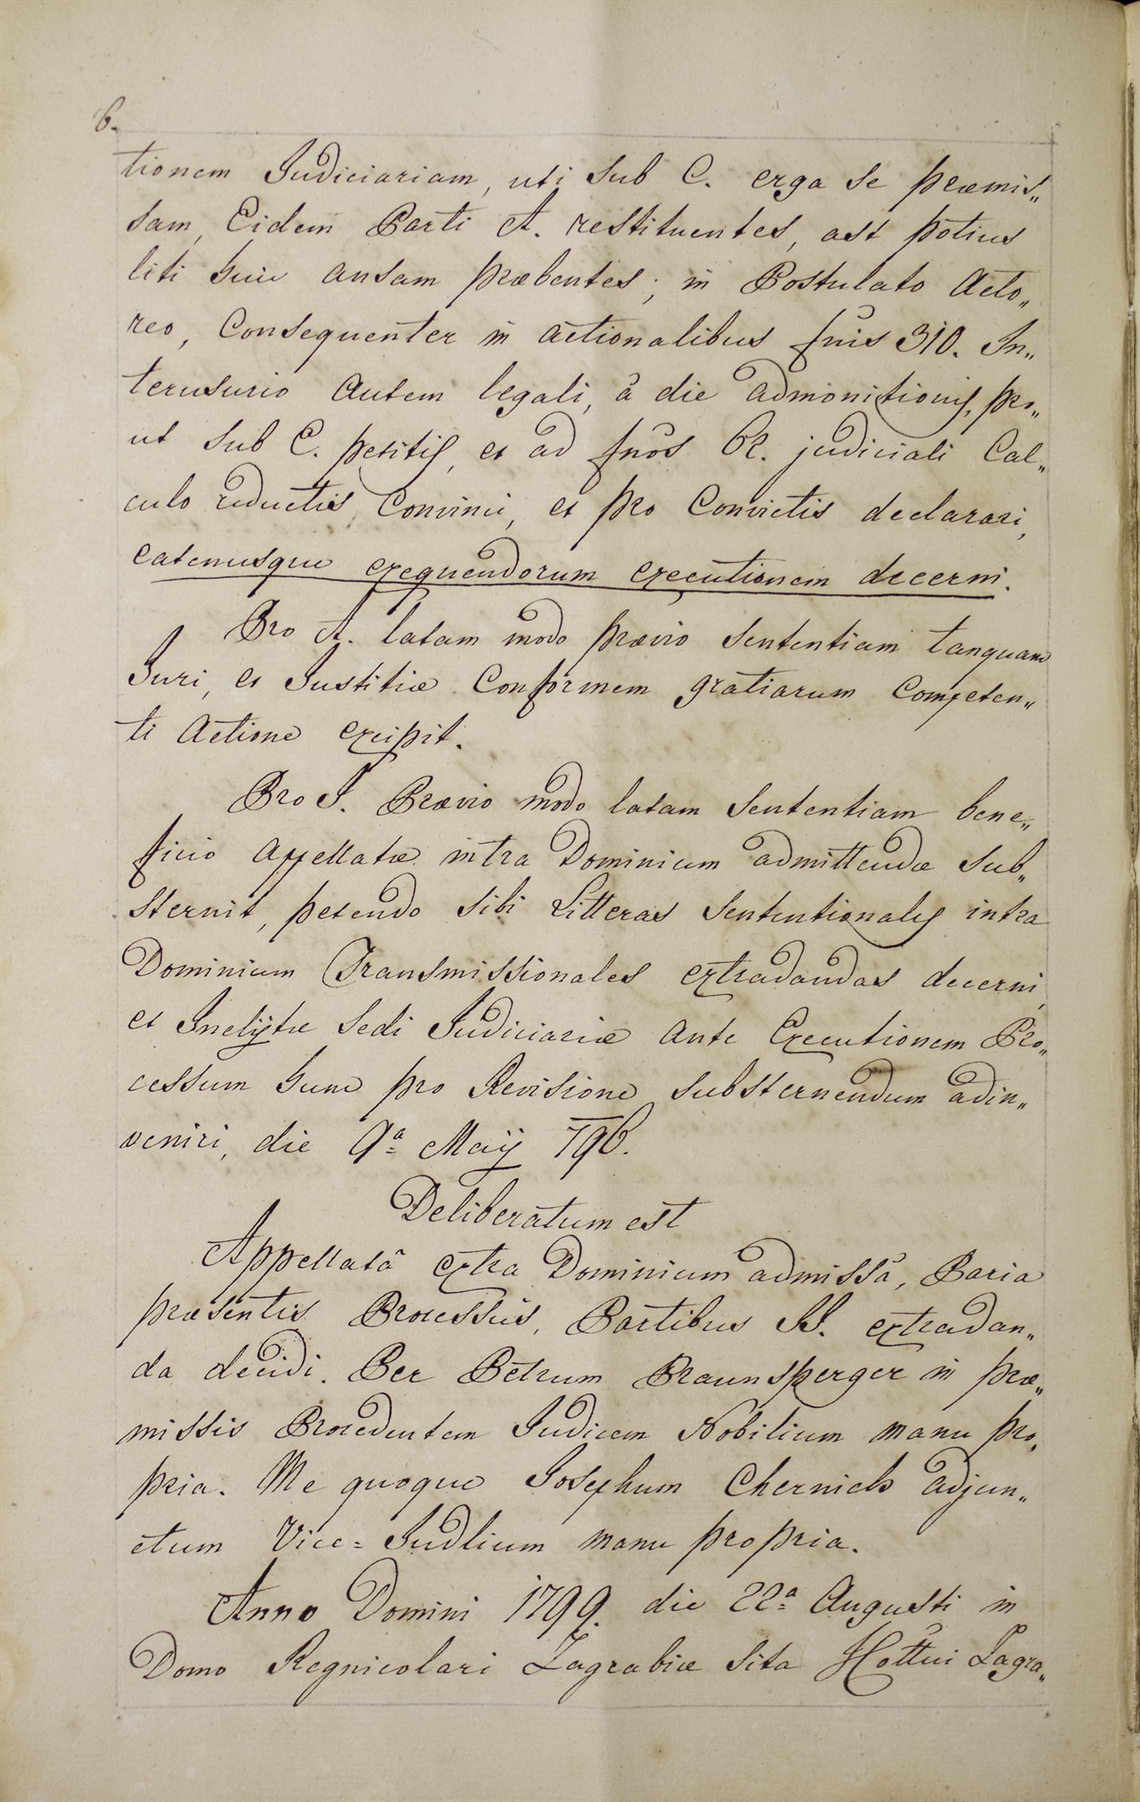 6.
tionem Judiciariam, uti sub C. erga se præmis„
sam, Eidem Parti A. restituentes, ast potius
liti huic ansam præbentes; in Postulato Acto„
reo, Consequenter in actionalibus fnis 310. In„
terusurio autem legali, â die admonitionis, pro„
ut sub C. petitis, et ad fnõs judiciali Cal„
culo reductis, Convinci, et pro Convictis declarari,
eatenusque exequendorum executionem decerni.
Pro A. latam modo prævio sententiam tanquam
Juri, et Justitiæ Conformem gratiarum Competen„
ti actione excipit.
Pro I. Prævio modo latam sententiam bene„
ficio appellatæ intra Dominium admittendæ sub„
sternit, petendo sibi Litteras sententionales intra
Dominium Transmissionales extradandas decerni,
et Inclÿtæ Sedi Judiciariæ ante Executionem Pro„
cessum hunc pro Revisione substernendum adin„
veniri, die 9ª Maÿ 796.
Deliberatum est
Appellatâ extra Dominium admissâ, Paria
præsentis Processûs, Partibus II. extradan„
da decidi. Per Petrum Praunsperger in præ„
missis Procedentem Judicem Nobilium manu pro„
pria. Me quoque Josephum Chernich adjun„
ctum Vice=Judlium manu propria.
Anno Domini 1799. die 22ª Augusti in
Domo Regnicolari Zagrabiæ sita Cottui Zagra„